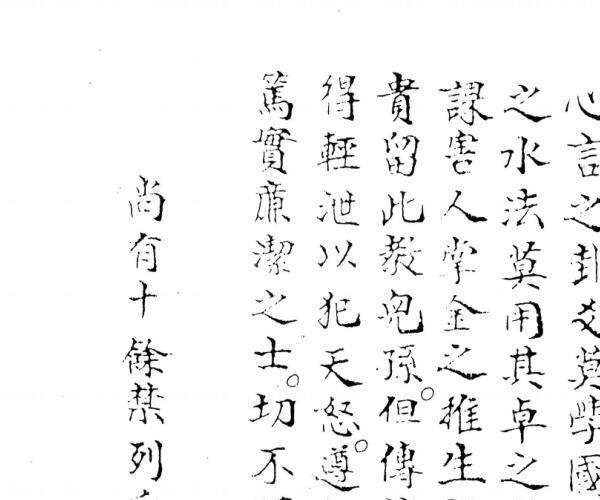 言之卦爻莫學國
之水法莫用其卓之
課害人掌金之推生
貴留此教兒孫。但傳
得輕泄以犯天怒。遵
篤實廉潔之士。切不
尚有十餘禁列